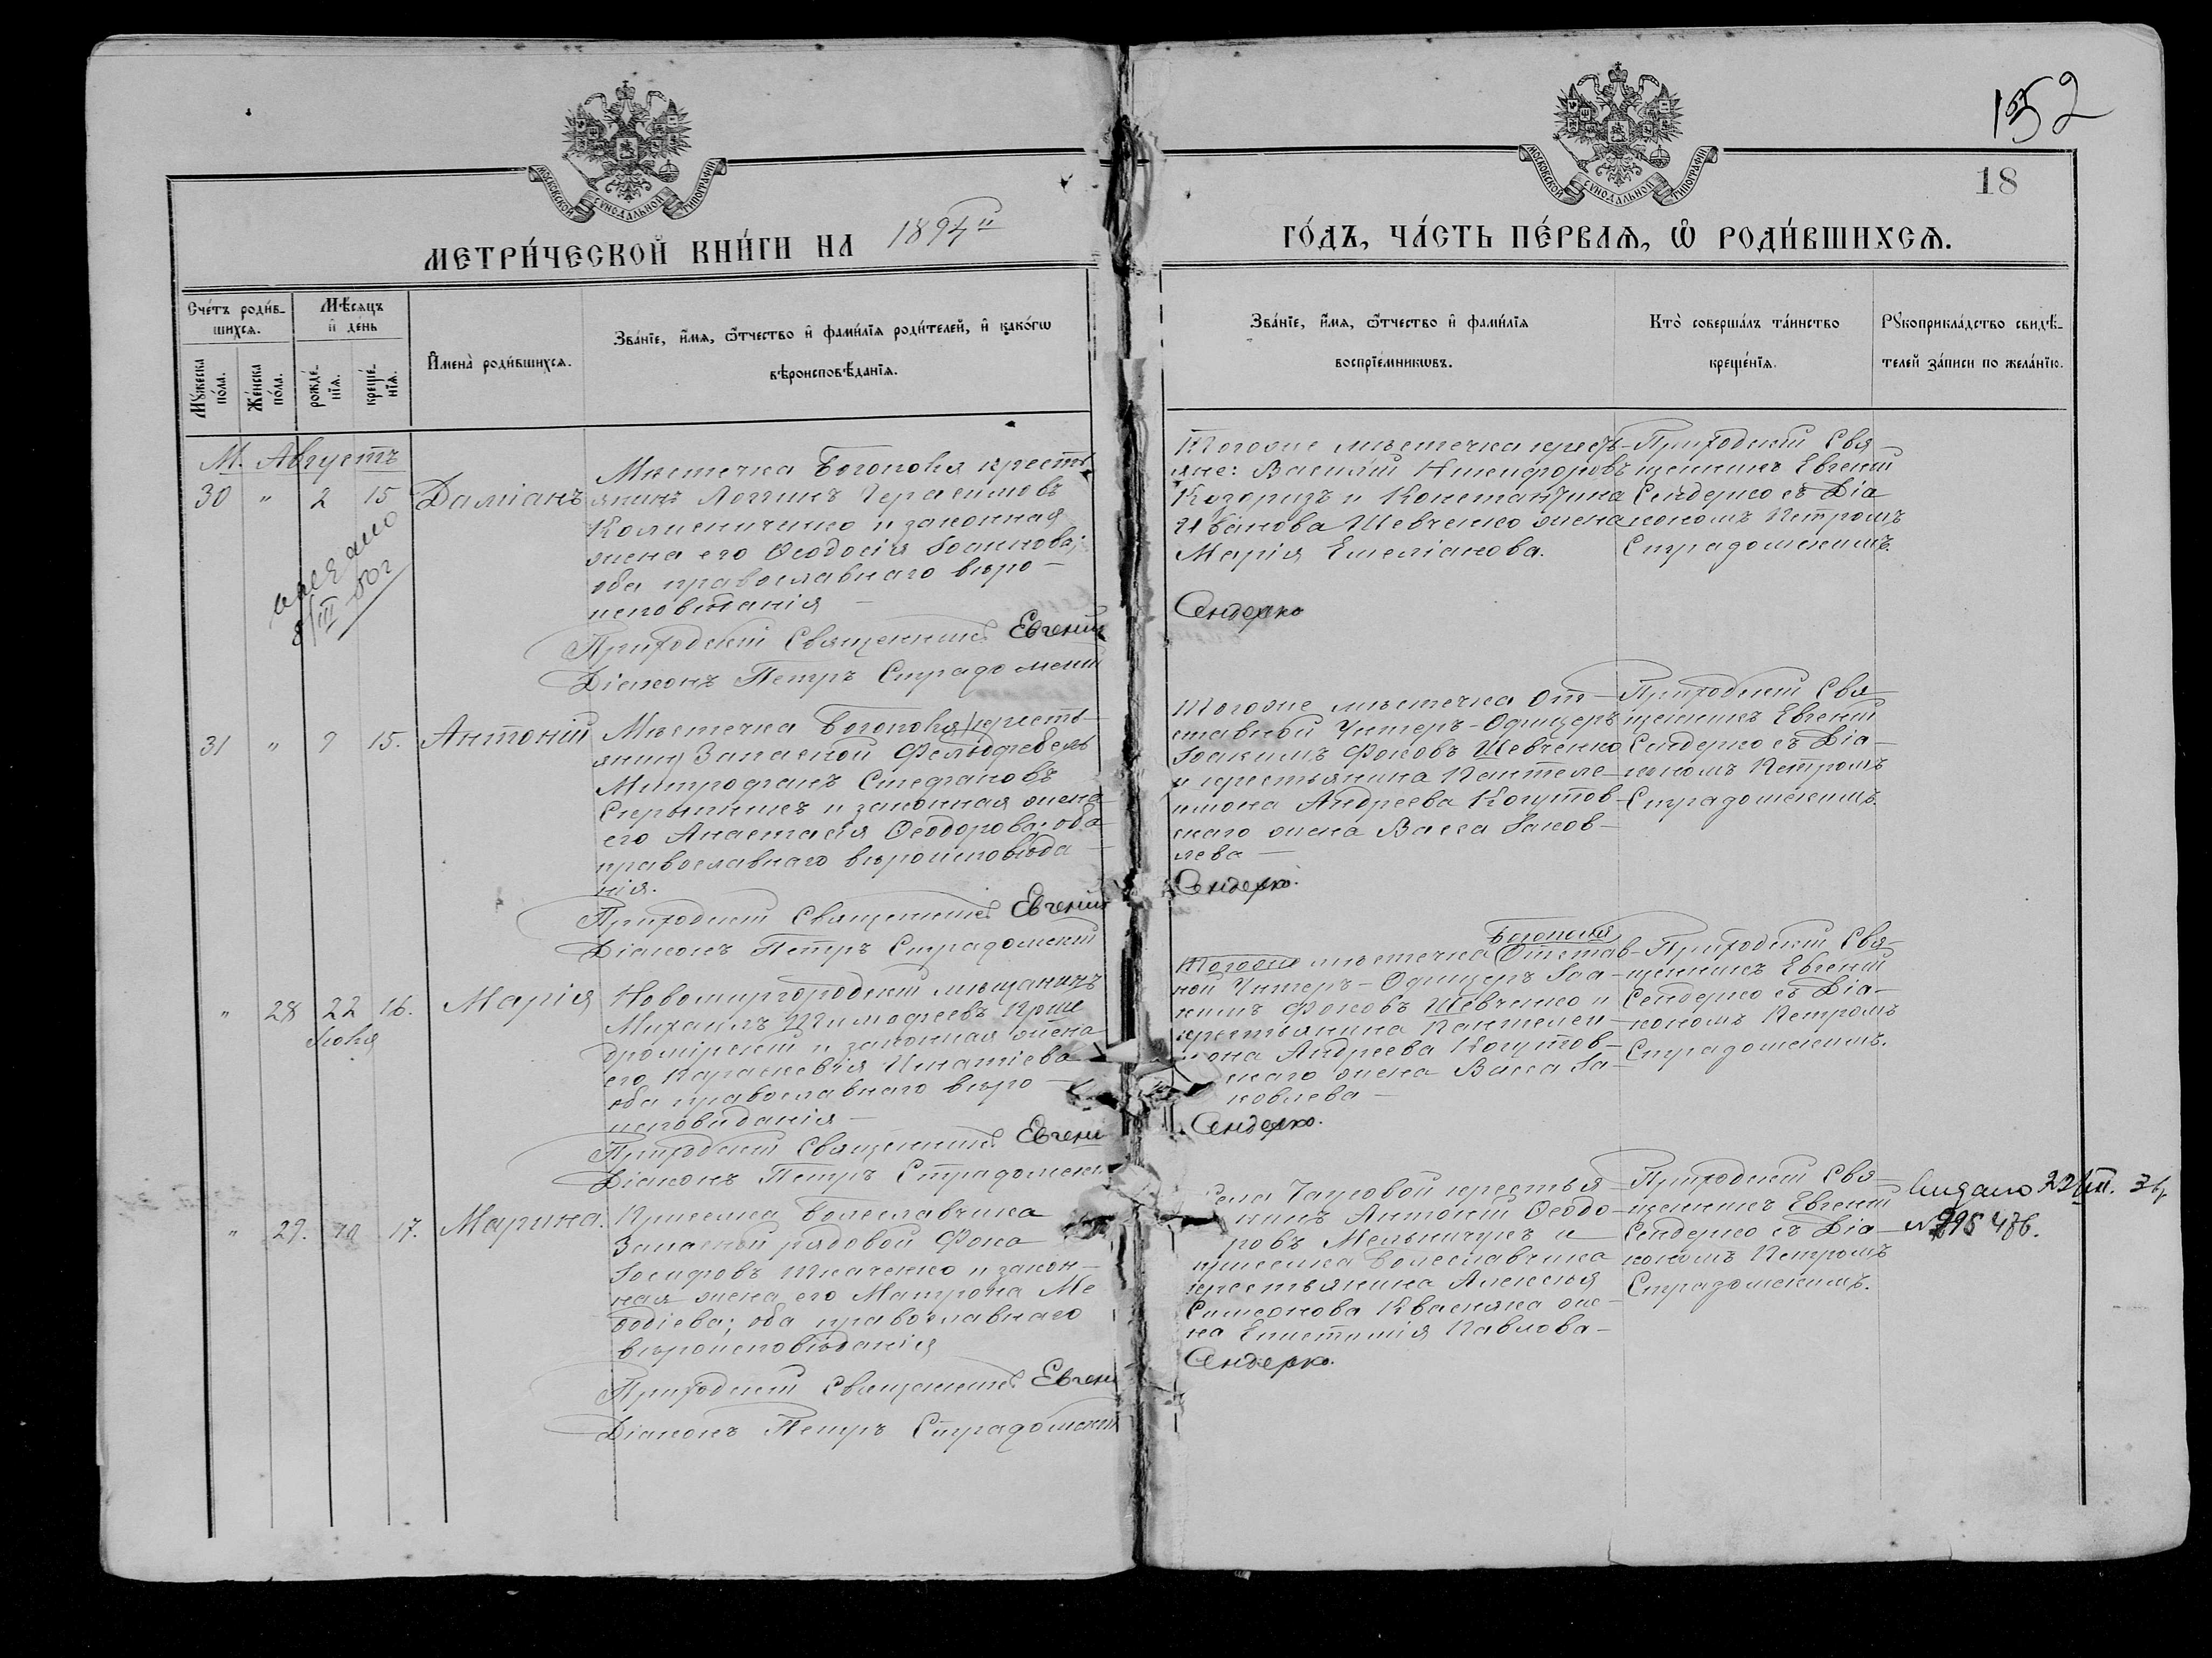 152
18
МОСКОВСКОЙ СѴНОДАЛЬНОЙ ТИПОГРАФІИ
МОСКОВСКОЙ СѴНОДАЛЬНОЙ ТИПОГРАФІИ
МЕТРИ́ЧЕСКОЙ КНИ́ГИ НА 1894й
ГО́ДЪ, ЧА́СТЬ ПЕ́РВАѦ, Ѡ҆ РОДИ́ВШИХСѦ.
Сче́тъ роди́в-
шихсѧ.
Мꙋ́жеска по́ла.
Же́нска по́ла.
Мѣ́сѧцъ
и҆ де́нь
рожде́-
нїѧ.
креще́-
нїѧ.
И҆мена̀ роди́вшихсѧ.
Зва́нїе, и҆́мѧ, ѻ҆́тчество и҆ фами́лїѧ роди́телей, и҆ како́гѡ
вѣроисповѣ́данїѧ.
Зва́нїе, и҆́мѧ, ѻ҆́тчество и҆ фами́лїѧ
воспрїе́мникѡвъ.
Кто̀ соверша́лъ та́инство
креще́нїѧ.
Рꙋкоприкла́дство свидѣ́-
телей за́писи по жела́нїю.
М. Августъ
30 " 2 15 Даміанъ
Мѣстечка Богополя кресть
янинъ Логгинъ Герасимовъ
Колисниченко и законная
жена его Ѳеодосія Іоаннова;
оба православнаго вѣро-
исповѣданія —
Приходскій Священникъ Евгеній
Діаконъ Петръ Страдомскій
Тогоже мѣстечка крестья-
яне: Василій Никифоровъ
Козоризъ и Константина
Иванова Шевченко жена
Марія Емеліанова.
Сендерко
Приходскій Свя-
щенникъ Евгеній
Сендерко съ Діа
кономъ Петромъ
Страдомскимъ.
8/III
31 " 9 15. Антоній
Мѣстечка Богополя кресть-
янинъ Запасной Фельдфебель
Митрофанъ Стефановъ
Скрыпникъ и законная жена
его Анастасія Ѳеодорова; оба
православнаго вѣроисповѣда-
нія.
Приходскій Священникъ Евгеній
Діаконъ Петръ Страдомскій
Тогоже мѣстечка От-
ставной Унтеръ-Офицеръ
Іоакимъ Фоковъ Шевченко
и крестьянина Пантеле-
имона Андреева Когутов-
скаго жена Васса Іаков-
лева —
Сендерко.
Приходскій Свя-
щенникъ Евгеній
Сендерко съ Діа-
кономъ Петромъ
Страдомскимъ.
" 28 22 16. Марія
Іюля
Новомиргородскій мѣщанинъ
Михаилъ Тимофеевъ
и законная жена
его Параскевія Игнатіева
оба православнаго вѣро-
исповѣданія —
Приходскій Священникъ Евгені
Діаконъ Петръ Страдомскі
Богополя
Тогоже мѣстечка Отстав-
ной Унтеръ-Офицеръ Іоа-
кимъ Фоковъ Шевченко и
крестьянина Пантелеи-
мона Андреева Когутов-
скаго жена Васса Іа-
ковлева —
Сендерко.
Приходскій Свя-
щенникъ Евгеній
Сендерко съ Діа-
кономъ Петромъ
Страдомскимъ.
" 29. 17. Марина.
Приселка Болеславчика
Запасной рядовой Фока
Іосифовъ Ткаченко и закон-
ная жена его Матрона Ме
ѳодіева; оба православнаго
вѣроисповѣданія
Приходскій Священникъ Евгені
Діаконъ Петръ Страдомскій
Села Чаусовой крестья
нинъ Антоній Ѳеодо-
ровъ Мельничукъ и
приселка Болеславчика
крестьянина Алексѣя
Симеонова Квасняка же-
на Епистимія Павлова —
Сендерко.
Приходскій Свя-
щенникъ Евгеній
Сендерко съ Діа-
кономъ Петромъ
Страдомскимъ.